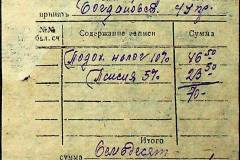 принять Богданов
№№ был. сч Содержание записи Сумма
Подох. налог 10% 46 50
Пенсия 5% 23 50
70 -
Итого
сумма Семьдесят